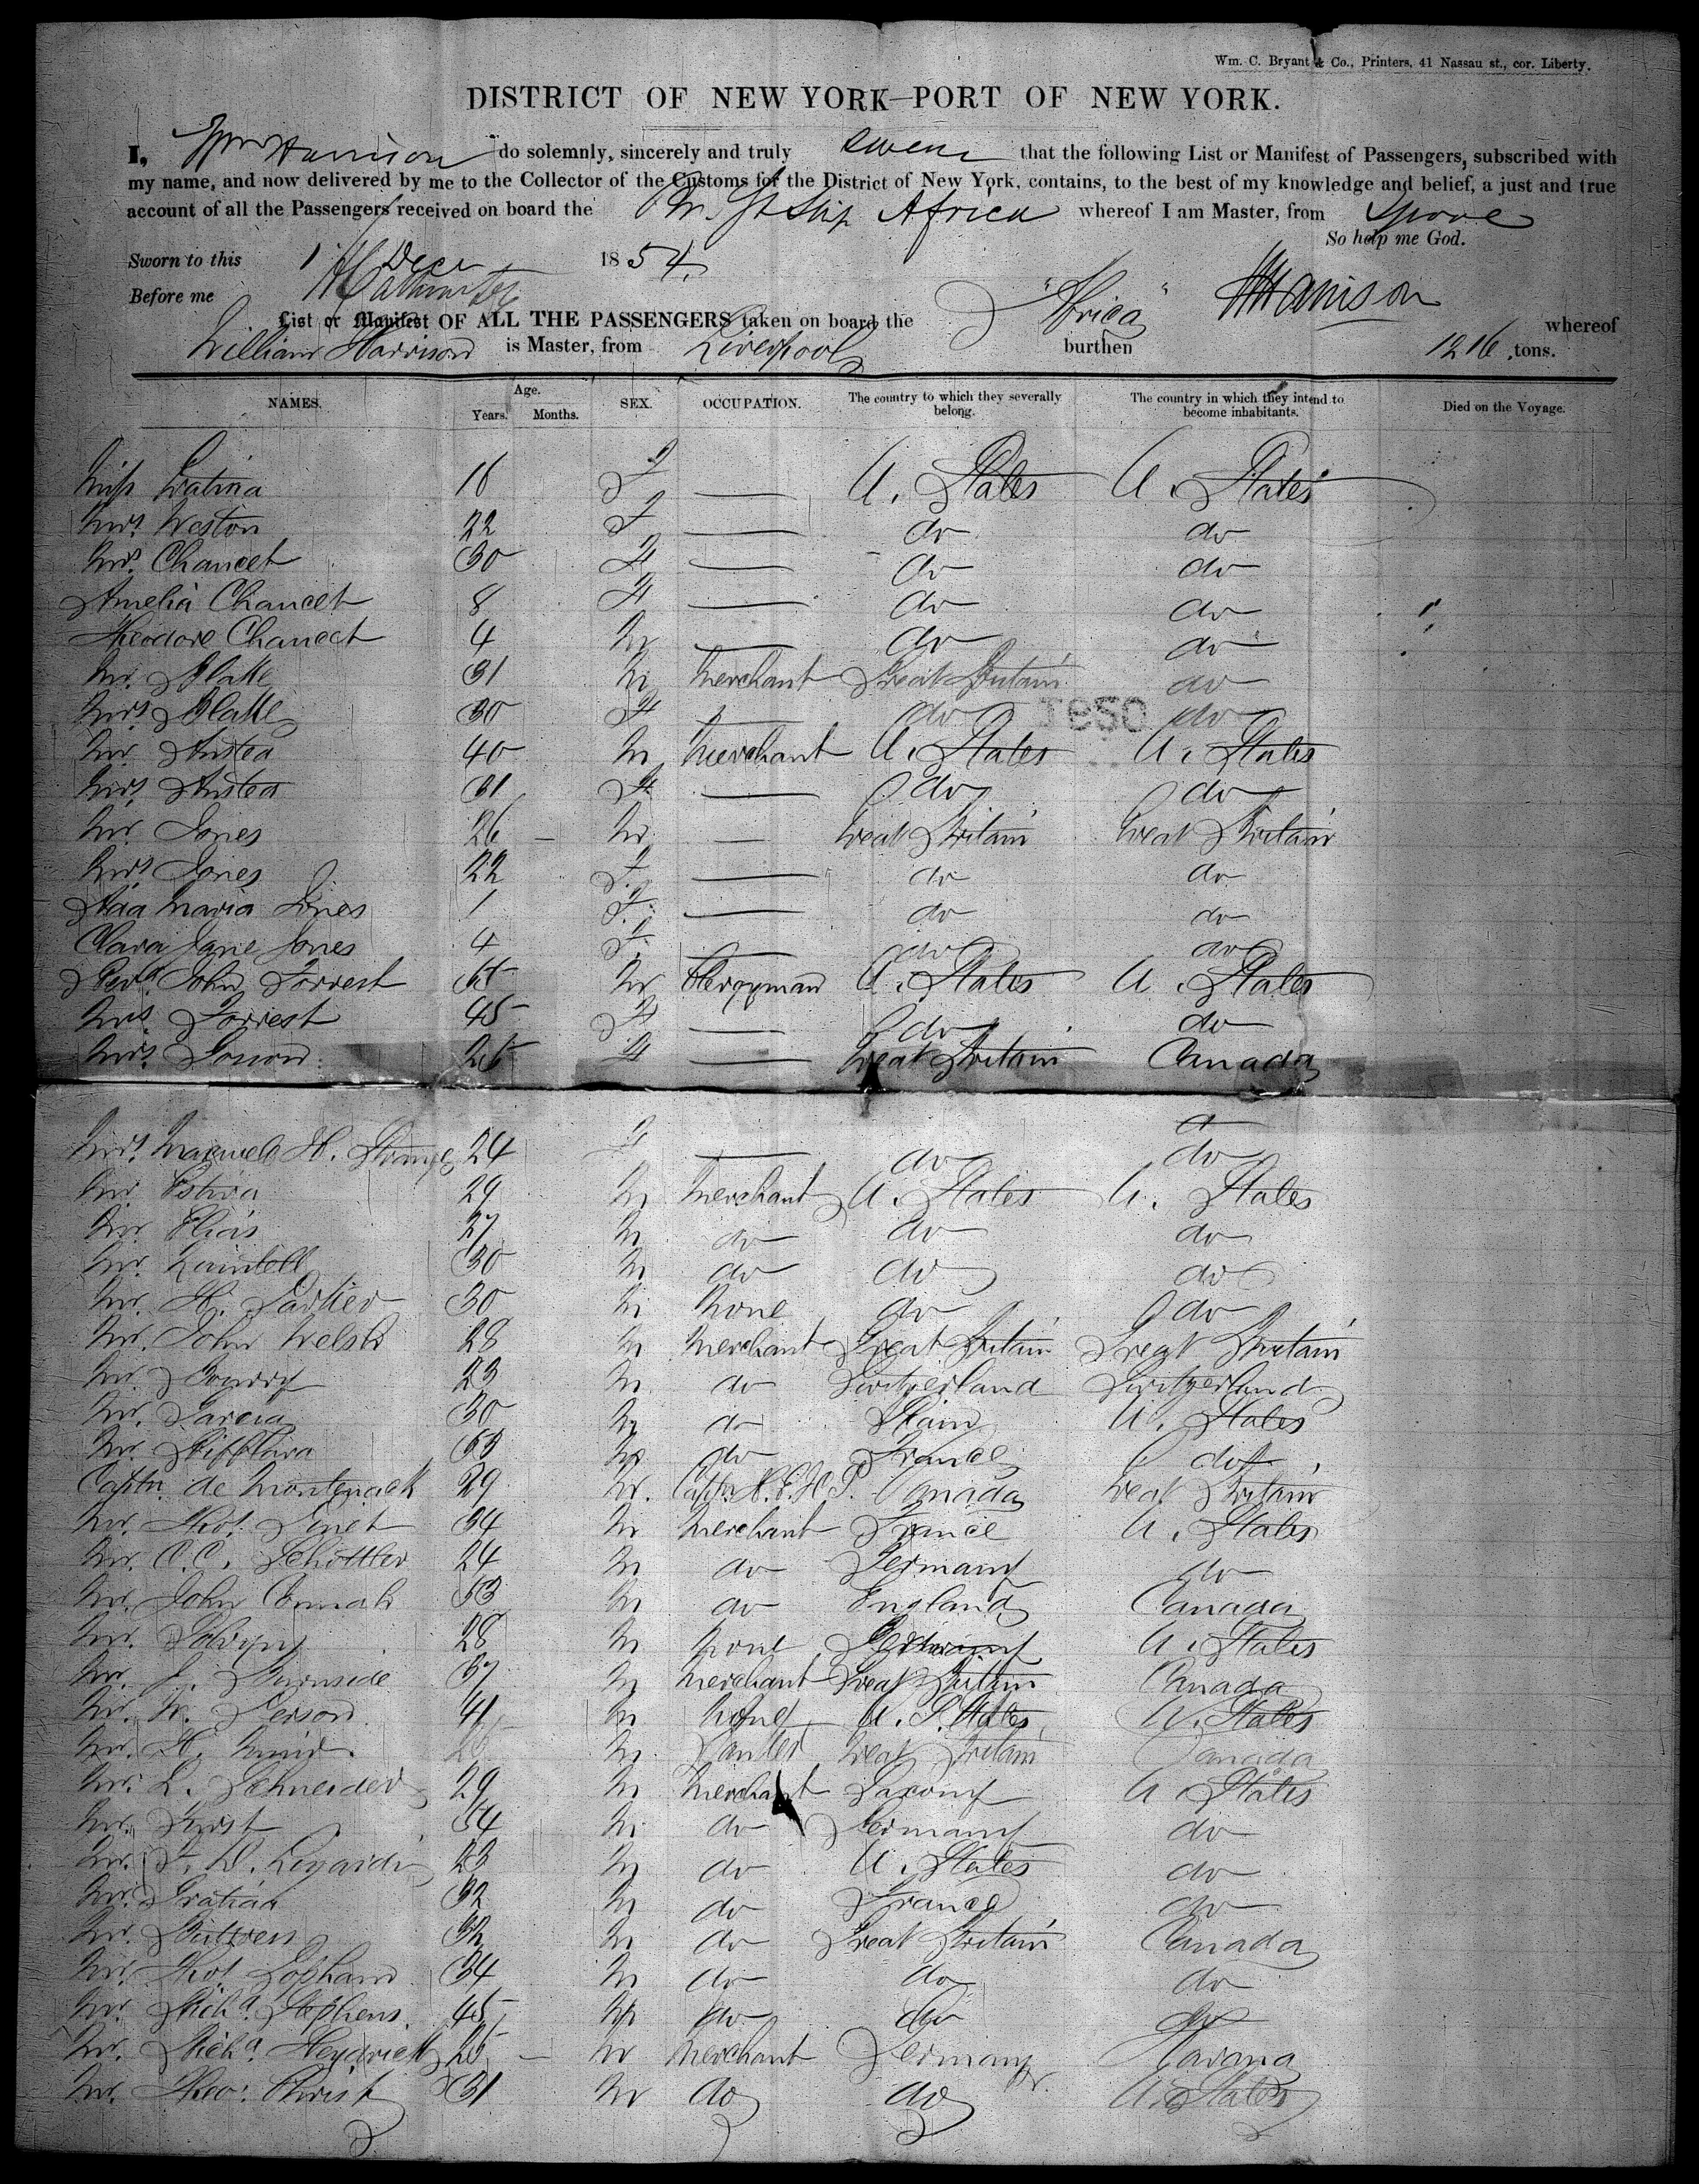 Wm. C. Bryant & Co., Printers, 41 Nassau st., cor. Liberty.
DISTRICT OF NEW YORK—PORT OF NEW YORK.
I, Wm Harrison do solemnly, sincerely and truly swear that the following List or Manifest of Passengers, subscribed with
my name, and now delivered by me to the Collector of the Customs for the District of New York, contains, to the best of my knowledge and belief, a just and true
account of all the Passengers received on board the Ship Africa whereof I am Master, from Lpool
So help me God.
Sworn to this 1 Decr 1854.
Before me
WHarrison
List or Manifest OF ALL THE PASSENGERS taken on board the "Africa" whereof
William Harrison is Master, from Liverpool burthen 1216 tons.
NAMES. Age. Years. Months. SEX. OCCUPATION. The country to which they severally belong. The country in which they intend to become inhabitants. Died on the Voyage.
Miss 18 F — U. States U. States
Mrs. Weston 22 F — do do
Mrs. Chancet 30 F — do do
Amelia Chancet 8 F — do do
Theodore Chancet 4 M — do do
Mr. Blake 31 M Merchant Great Britain do
Mrs. Blake 30 F — do do
Mr. Anstea 40 M Merchant U. States U. States
Mrs. Anstea 31 F — do do
Mr. Jones 26 — M — Great Britain Great Britain
Mrs. Jones 22 F — do do
Ada Maria Jones 1 F. — do do
Clara Jane Jones 4 F. — do do
Revd. John Forrest M Clergyman U. States U. States
Mrs. Forrest 45 F — do do
Mrs. F — Great Britain Canada
Mrs. Maxwell H. Strange 24 F — do do
Mr. Estiva 29 M Merchant U. States U. States
Mr. Elias 27 M do do do
Mr. 30 M do do do
Mr. H. 30 M None do do
Mr. John Welsh 28 M Merchant Great Britain Great Britain
Mr. 23 M. do Switzerland Switzerland
Mr. Garcia 30 M do Spain U. States
Mr. M do France do
Captn. de Montenach 29 M. Canada Great Britain
Mr. Thos. 34 M Merchant France U. States
Mr. C. C. Schottler 24 M do Germany do
Mr. John Connah 53 M do England Canada
Mr. 28 M None Germany U. States
Mr. J. Burnside 37 M Merchant Great Britain Canada
Mr. W. 41 M None U. States U. States
Mr. H. M Great Britain Canada
Mr. L. Schneider 29 M Merchant Saxony U. States
Mr. Furst 34 M do Germany do
Mr. 23 M do U. States do
Mr. Gratian 32 M do France do
Mr. 32 M do Great Britain Canada
Mr. Thos. 34 M do do do
Mr. Richd. Stephens. 45 M do do do
Mr. Richd. 25 — M Merchant Germany Havana
Mr. Theo. Christ 31 M do do U. States